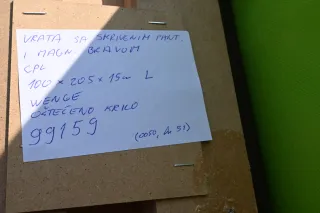 VRATA SA SKRIVENIM PANT.
I MAGN BRAVOM
CPL
100 x 205 x 15cm L
WENGE
OŠTEĆENO KRILO
99159